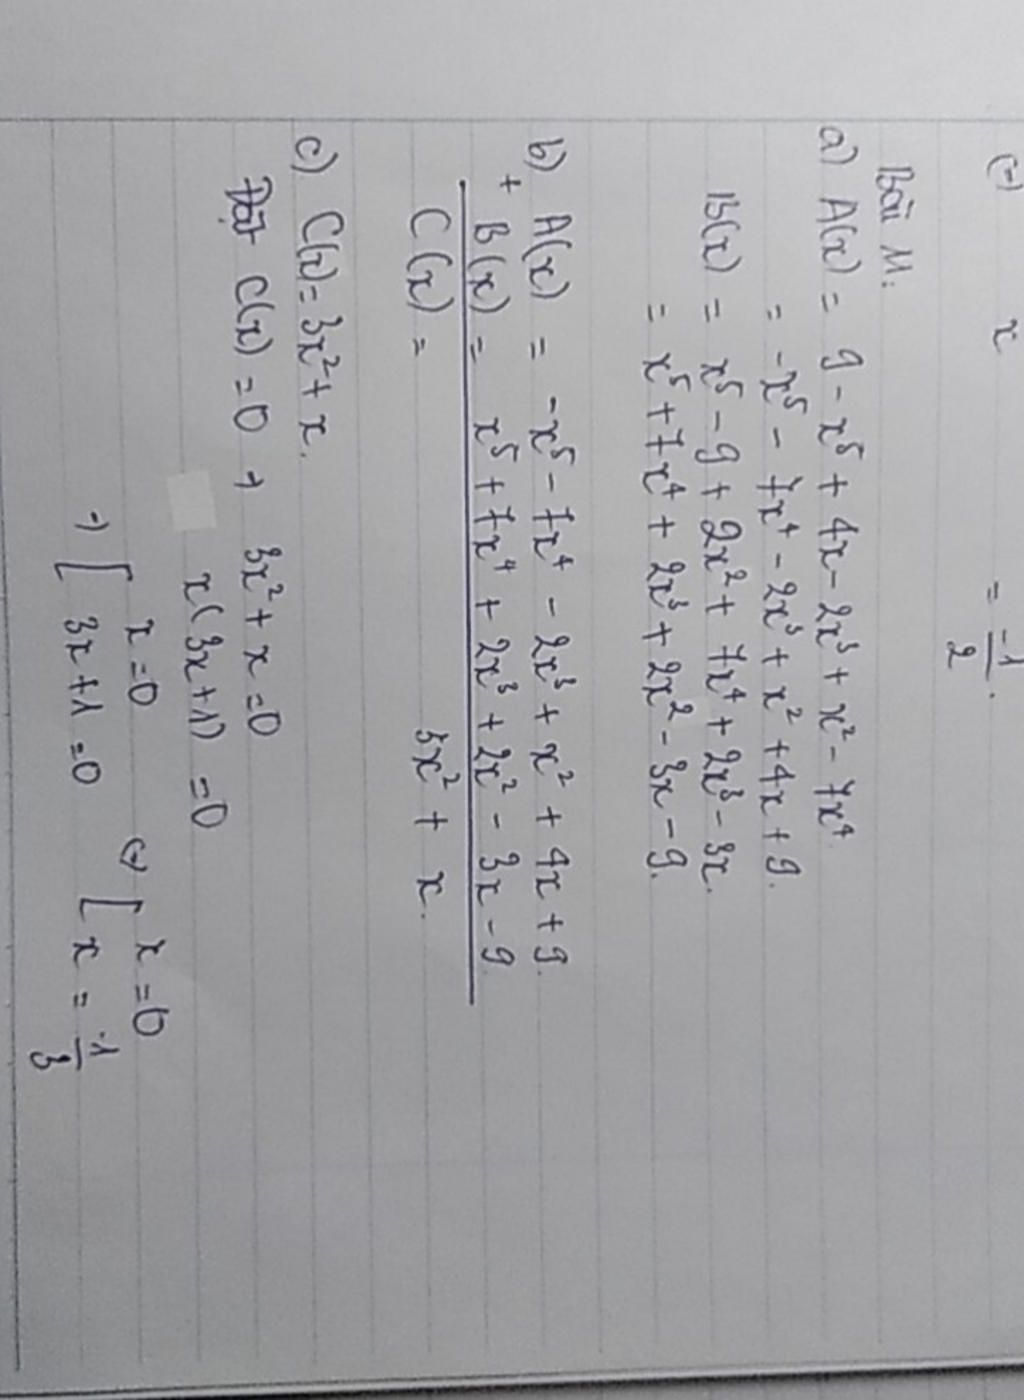 (-) x = -1/2.
Bài 11:
a) A(x) = 9 - x⁵ + 4x - 2x³ + x² - 7x⁴.
= -x⁵ - 7x⁴ - 2x³ + x² + 4x + 9.
B(x) = x⁵ - 9 + 2x² + 7x⁴ + 2x³ - 3x.
= x⁵ + 7x⁴ + 2x³ + 2x² - 3x - 9.
b) A(x) = -x⁵ - 7x⁴ - 2x³ + x² + 4x + 9.
+ B(x) = x⁵ + 7x⁴ + 2x³ + 2x² - 3x - 9
C(x) = 3x² + x.
c) C(x) = 3x² + x.
Đặt C(x) = 0 → 3x² + x = 0
x(3x + 1) = 0
→ [ x = 0 (=) [ x = 0
3x + 1 = 0 x = -1/3